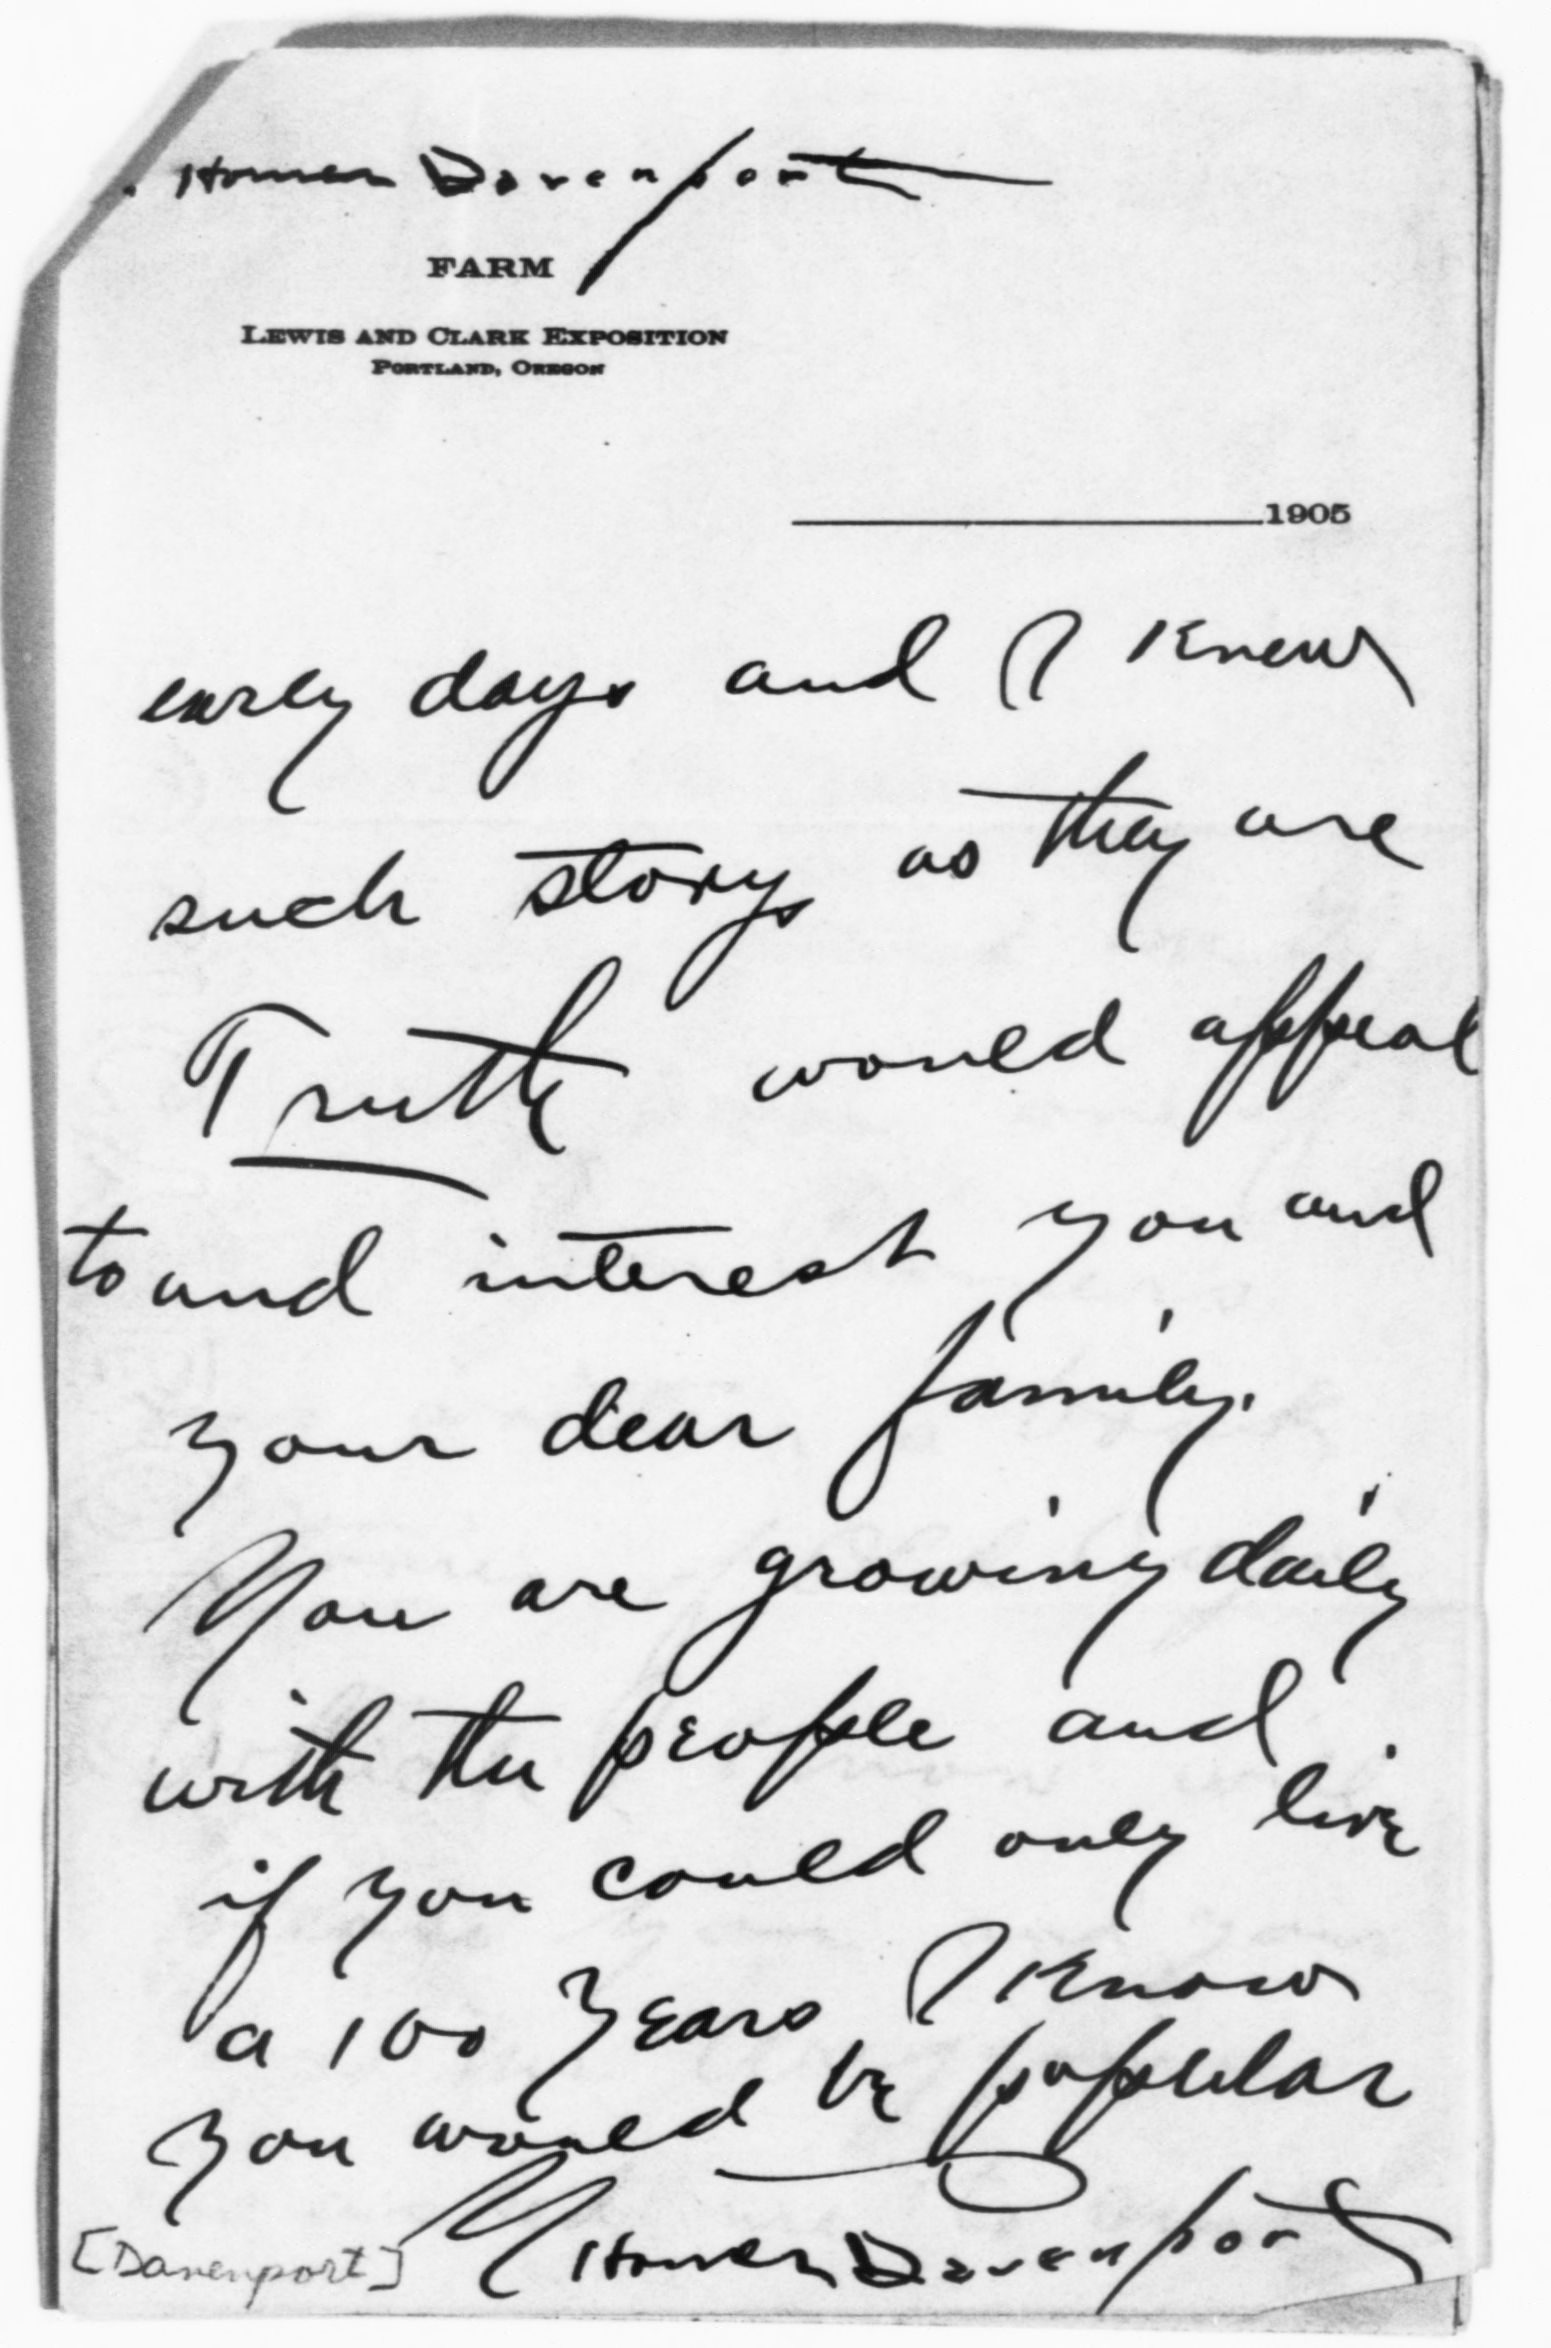 Homer Davenport
FARM
LEWIS AND CLARK EXPOSITION
PORTLAND, OREGON
1905
early days and I knew
such storys as they are
Truth would appeal
to and interest you and
your dear family.
You are growing daily
with the people and
if you could only live
a 100 years I know
you would be popular
Homer Davenport
[Davenport]